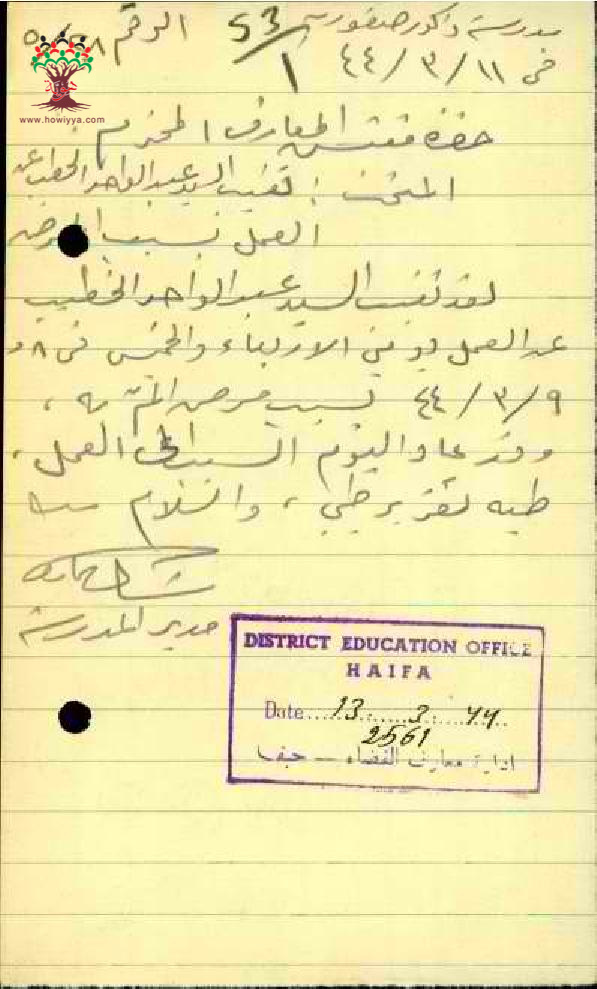 مدرسة ذكور صفورية 53/1 الرقم
في ١١ / ٣ / ٤٤
هوية
www.howiyya.com
حضرة مفتش المعارف المحترم
المبحث : تغيب السيد عبد الواحد الخطيب عن
العمل بسبب المرض
لقد تغيب السيد عبد الواحد الخطيب
عن العمل يومي الاربعاء والخميس في ٨ و
٩ / ٣ / ٤٤ بسبب مرض الم به ،
وقد عاد اليوم السبت الى العمل ،
طيه تقرير طبي ، والسلام
مدير المدرسة
DISTRICT EDUCATION OFFICE
HAIFA
Date 13. 3. 44
2561
ادارة معارف القضاء - حيفا